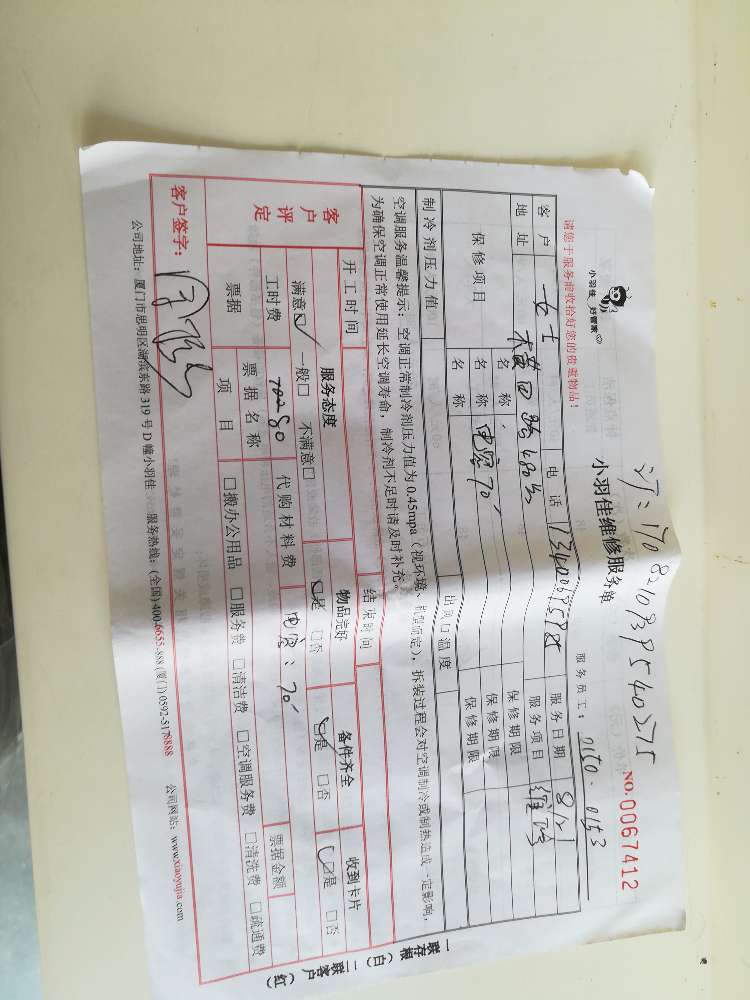 订:1708210389540275
小羽佳 好管家
小羽佳维修服务单
NO.0067412
请您于服务前收拾好您的贵重物品!
服务员工: 0150.0153
客户 女士 电话 服务日期
地址 服务项目 维修
保修项目 名称 保修期限
名称 电容70 保修期限
名称 保修期限
制冷剂压力值 出风口温度
空调服务温馨提示:空调正常制冷剂压力值为0.45mpa(视环境、机型而定),拆装过程会对空调制冷或制热造成一定影响,
为确保空调正常使用延长空调寿命,制冷剂不足时请及时补充。
开工时间 结束时间
客户评定 服务态度 物品完好 备件齐全 收到卡片
满意☑ 一般□ 不满意□ ☑是 □否 ☑是 □否 ☑是 □否
工时费 代购材料费 电容:70
票据 票据名称 票据金额
项目 □搬办公用品 □服务费 □清洁费 □空调服务费 □清洗费 □疏通费
客户签字:
公司地址:厦门市思明区湖滨东路319号D幢小羽佳 服务热线:(全国)400-6655-888 (厦门)0592-5178888 公司网站:www.xiaoyujia.com
一联存根(白) 二联客户(红)